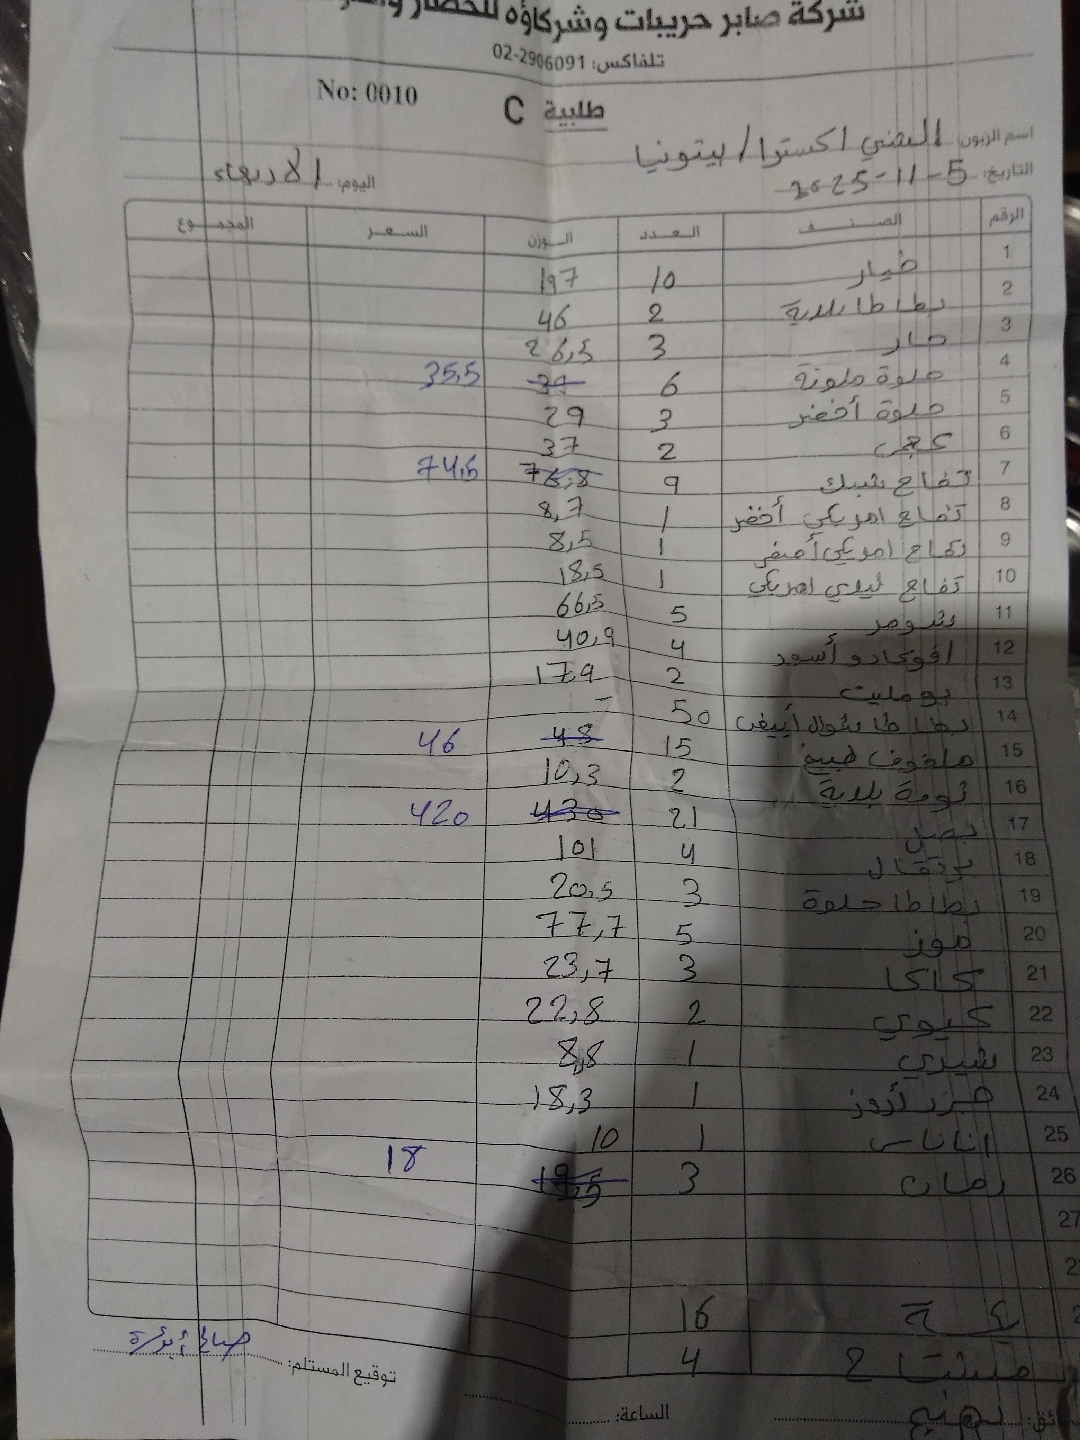 شركة صابر حريبات وشركاؤه للخضار
تلفاكس: 02-2906091
No: 0010
طلبية C
اسم الزبون: اكسترا / بيتونيا
التاريخ: 5-11-2025
اليوم: الاربعاء
الرقم الصنف العدد الوزن السعر المجموع
1 خيار 10 197
2 بطاطا بلدية 2 46
3 حار 3 26,5
4 حلوة ملونة 6 35.5
5 حلوة أخضر 3 29
6 2 37
7 تفاح شبك 9 74.5
8 تفاح امريكي أخضر 1 8,7
9 تفاح امريكي أصفر 1 8,5
10 تفاح ليدي امريكي 1 18,5
11 شومر 5 66,5
12 افوكادو أسود 4 40,9
13 بومليت 2 17,9
14 بطاطا شوال أبيض 50 -
15 ملفوف طبيخ 15 48 46
16 ثومة بلدية 2 10,3
17 بصل 21 430 420
18 برتقال 4 101
19 بطاطا حلوة 3 20,5
20 موز 5 77,7
21 كاكا 3 23,7
22 كيوي 2 22,8
23 شيري 1 8,8
24 جزر 1 18,3
25 اناناس 1 10
26 رمان 3 18
27
16
مشتاح 4
توقيع المستلم:
الساعة: